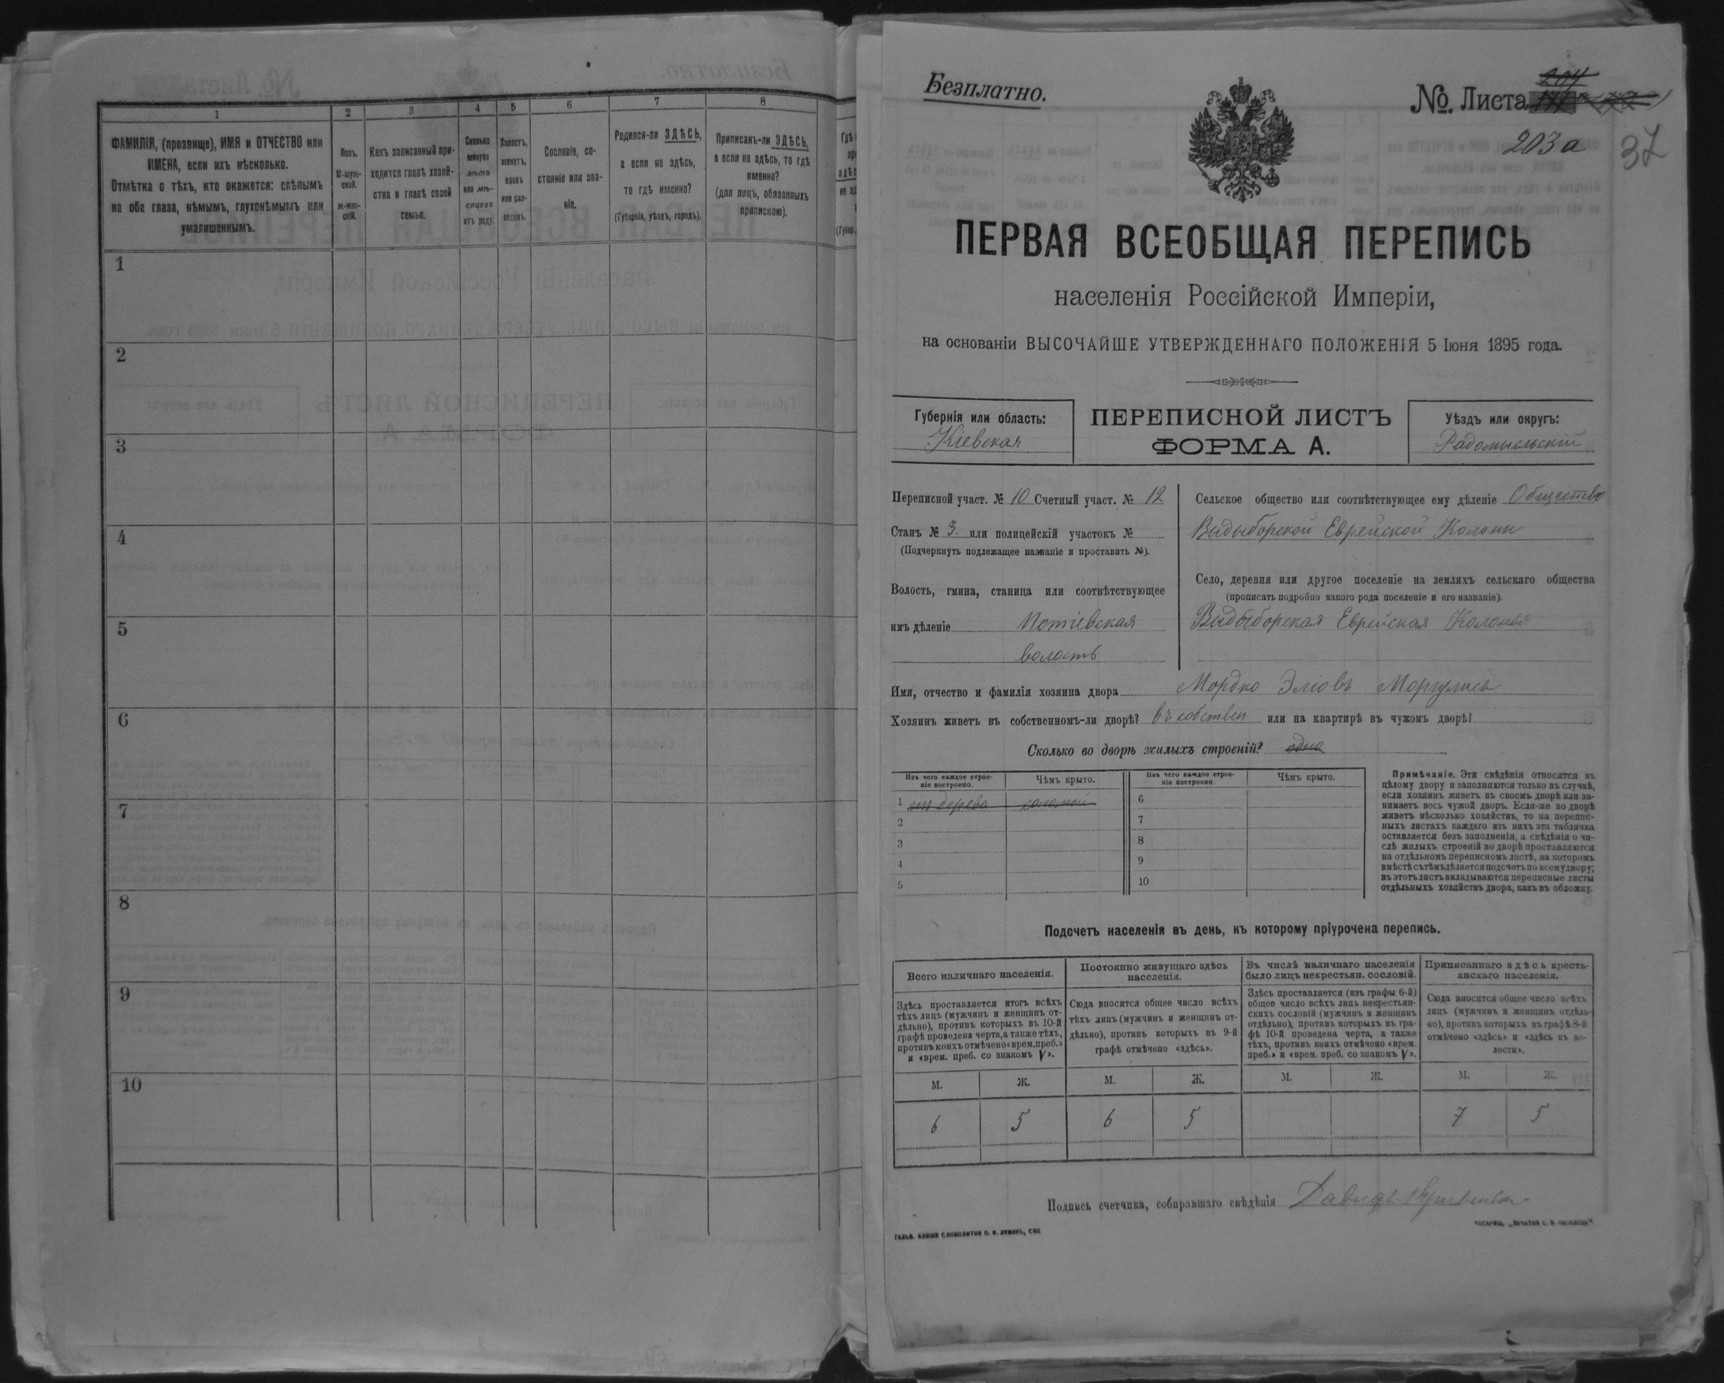 1
2
3
4
5
6
7
8
ФАМИЛІЯ, (прозвище), ИМЯ и ОТЧЕСТВО или
ИМЕНА, если ихъ нѣсколько.
Отмѣтка о тѣхъ, кто окажется: слѣпымъ
на оба глаза, нѣмымъ, глухонѣмымъ или
умалишеннымъ.
Полъ.
М-муж-
ской.
ж-жен-
скій.
Какъ записанный при-
ходится главѣ хозяй-
ства и главѣ своей
семьи.
Сколько
минуло
лѣтъ
или мѣ-
сяцевъ
отъ роду.
Холостъ,
женатъ,
вдовъ
или раз-
веденъ.
Сословіе, со-
стояніе или зва-
ніе.
Родился-ли ЗДѢСЬ,
а если не здѣсь,
то гдѣ именно?
(Губернія, уѣздъ, городъ).
Приписанъ-ли ЗДѢСЬ,
а если не здѣсь, то гдѣ
именно?
(для лицъ, обязанныхъ
припискою).
1
2
3
4
5
6
7
8
9
10
Безплатно.
№. Листа
204
203а
37
ПЕРВАЯ ВСЕОБЩАЯ ПЕРЕПИСЬ
населенія Россійской Имперіи,
на основаніи ВЫСОЧАЙШЕ УТВЕРЖДЕННАГО ПОЛОЖЕНІЯ 5 Іюня 1895 года.
Губернія или область:
Кіевская
ПЕРЕПИСНОЙ ЛИСТЪ
ФОРМА А.
Уѣздъ или округъ:
Радомысльскій
Переписной участ. № 10 Счетный участ. № 12
Станъ № 3. или полицейскій участокъ №
(Подчеркнуть подлежащее названіе и проставить №).
Волость, гмина, станица или соотвѣтствующее
имъ дѣленіе Потіевская
волость
Сельское общество или соотвѣтствующее ему дѣленіе Общество
Выдыборской Еврейской Колоніи
Село, деревня или другое поселеніе на земляхъ сельскаго общества
(прописать подробно какого рода поселеніе и его названіе).
Выдыборская Еврейская Колонія
Имя, отчество и фамилія хозяина двора Мордко Элiовъ Моргулисъ
Хозяинъ живетъ въ собственномъ-ли дворѣ? въ собствен или на квартирѣ въ чужомъ дворѣ?
Сколько во дворѣ жилыхъ строеній? одна
Изъ чего каждое строе-
ніе построено.
Чѣмъ крыто.
Изъ чего каждое строе-
ніе построено.
Чѣмъ крыто.
1 изъ дерева соломой
2
3
4
5
6
7
8
9
10
Примѣчаніе. Эти свѣдѣнія относятся къ
цѣлому двору и заполняются только въ случаѣ,
если хозяинъ живетъ въ своемъ дворѣ или за-
нимаетъ весь чужой дворъ. Если-же во дворѣ
живетъ нѣсколько хозяйствъ, то на перепис-
ныхъ листахъ каждаго изъ нихъ эта табличка
оставляется безъ заполненія, а свѣдѣнія о чи-
слѣ жилыхъ строеній во дворѣ проставляются
на отдѣльномъ переписномъ листѣ, на которомъ
вмѣстѣ съ тѣмъ дѣлается подсчетъ по всему двору;
въ этотъ листъ вкладываются переписные листы
отдѣльныхъ хозяйствъ двора, какъ въ обложку.
Подсчетъ населенія въ день, къ которому пріурочена перепись.
Всего наличнаго населенія.
Здѣсь проставляется итогъ всѣхъ
тѣхъ лицъ (мужчинъ и женщинъ от-
дѣльно), противъ которыхъ въ 10-й
графѣ проведена черта, а также тѣхъ,
противъ коихъ отмѣчено «врем. преб.»
и «врем. преб. со знакомъ V».
Постоянно живущаго здѣсь
населенія.
Сюда вносится общее число всѣхъ
тѣхъ лицъ (мужчинъ и женщинъ от-
дѣльно), противъ которыхъ въ 9-й
графѣ отмѣчено «здѣсь».
Въ числѣ наличнаго населенія
было лицъ некрестьян. сословій.
Здѣсь проставляется (изъ графы 6-й)
общее число всѣхъ лицъ некрестьян-
скихъ сословій (мужчинъ и женщинъ
отдѣльно), противъ которыхъ въ гра-
фѣ 10-й проведена черта, а также
тѣхъ, противъ коихъ отмѣчено «врем.
преб.» и «врем. преб. со знакомъ V».
Приписаннаго здѣсь кресть-
янскаго населенія.
Сюда вносится общее число всѣхъ
лицъ (мужчинъ и женщинъ отдѣль-
но), противъ которыхъ въ графѣ 8-й
отмѣчено «здѣсь» и «здѣсь въ во-
лости».
М. Ж. М. Ж. М. Ж. М. Ж.
6 5 6 5 7 5
Подпись счетчика, собиравшаго свѣдѣнія Давидъ